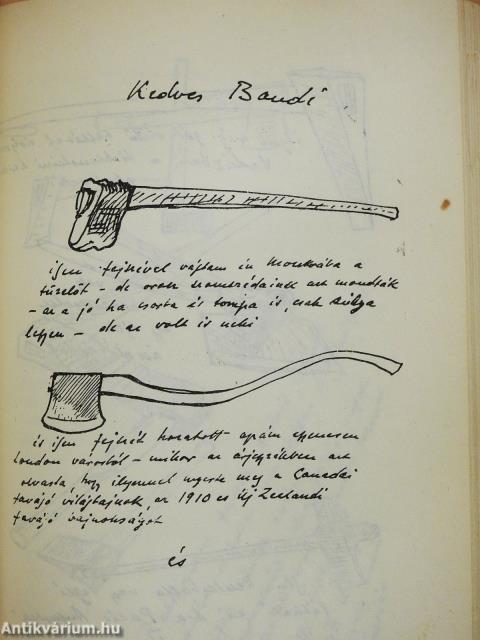 Kedves Bandi
ilyen fejszével vágtam én Moszkvába a
tüzelőt - de orosz szomszédaink azt mondták
- az a jó ha csorba és tompa is, csak súlya
legyen - de az volt is neki
és ilyen fejszét hozatott apám egyenesen
London városból - mikor az árjegyzékben azt
olvasta, hogy ilyennel nyerte meg a Canadai
favágó világbajnok, az 1910 es Új Zeelandi
favágó bajnokságot
és
Antikvárium.hu